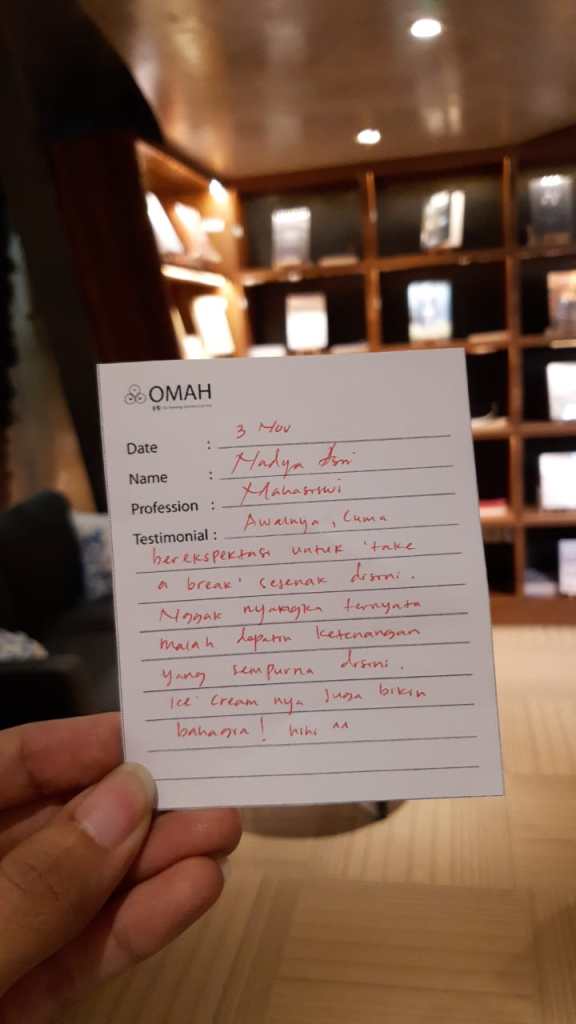 OMAH
Date : 3 Nov
Name : Nadya Asri
Profession : Mahasiswi
Testimonial : Awalnya, Cuma
berekspektasi untuk 'take
a break' sesenak disini.
Nggak nyangka ternyata
malah dapatin ketenangan
yang sempurna disini.
Ice cream nya juga bikin
bahagia! hihi ^^